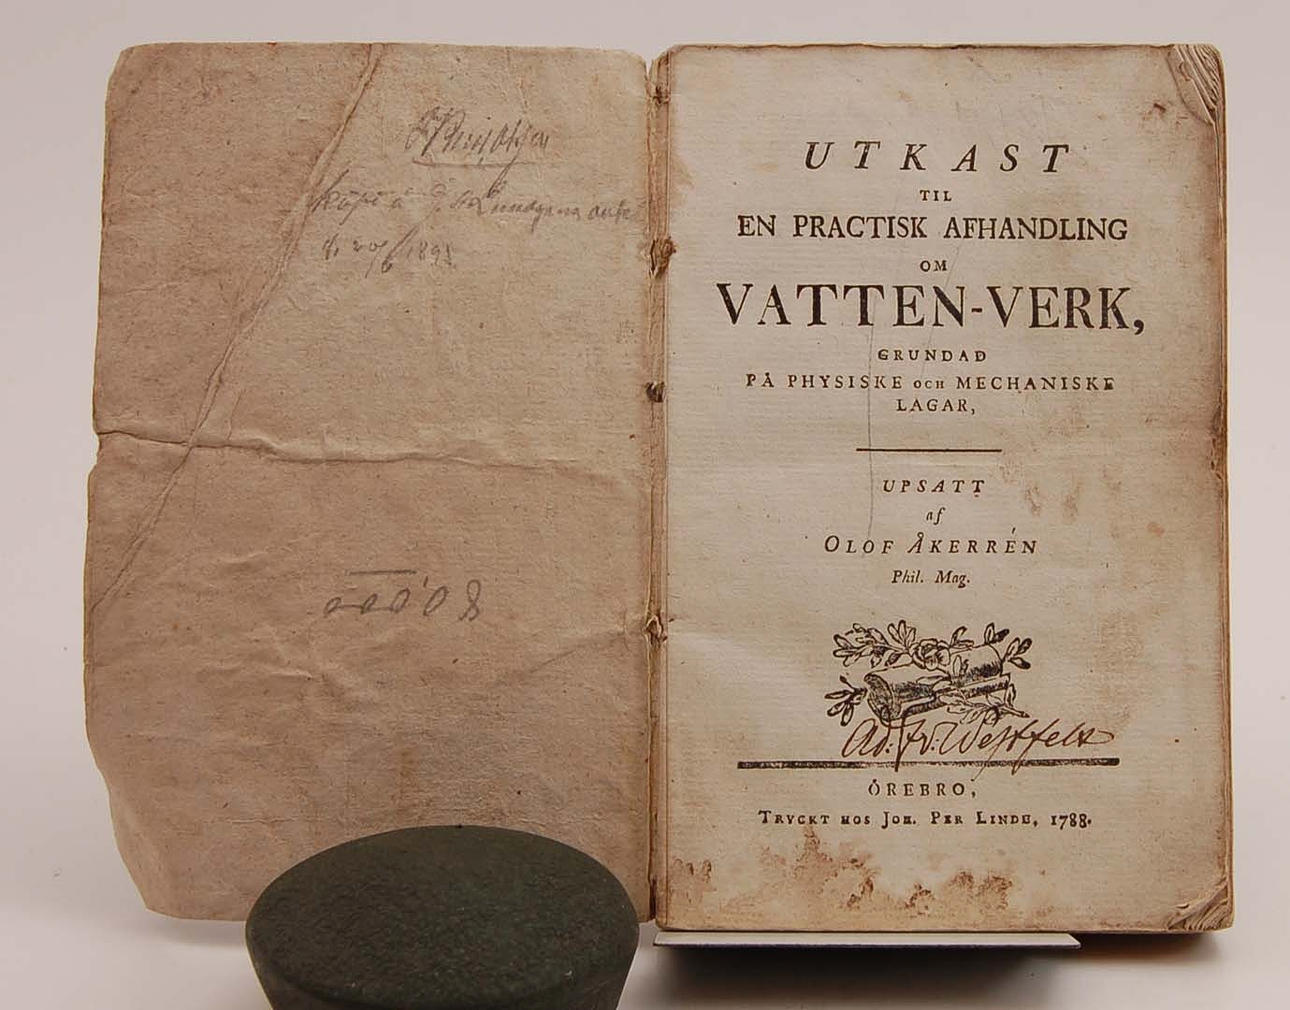 20/6 1898
UTKAST
TIL
EN PRACTISK AFHANDLING
OM
VATTEN-VERK,
GRUNDAD
PÅ PHYSISKE OCH MECHANISKE
LAGAR,
UPSATT
af
OLOF ÅKERRÉN
Phil. Mag.
Ad. Fr. Westfelt
ÖREBRO,
TRYCKT HOS JOH. PER LINDE, 1788.